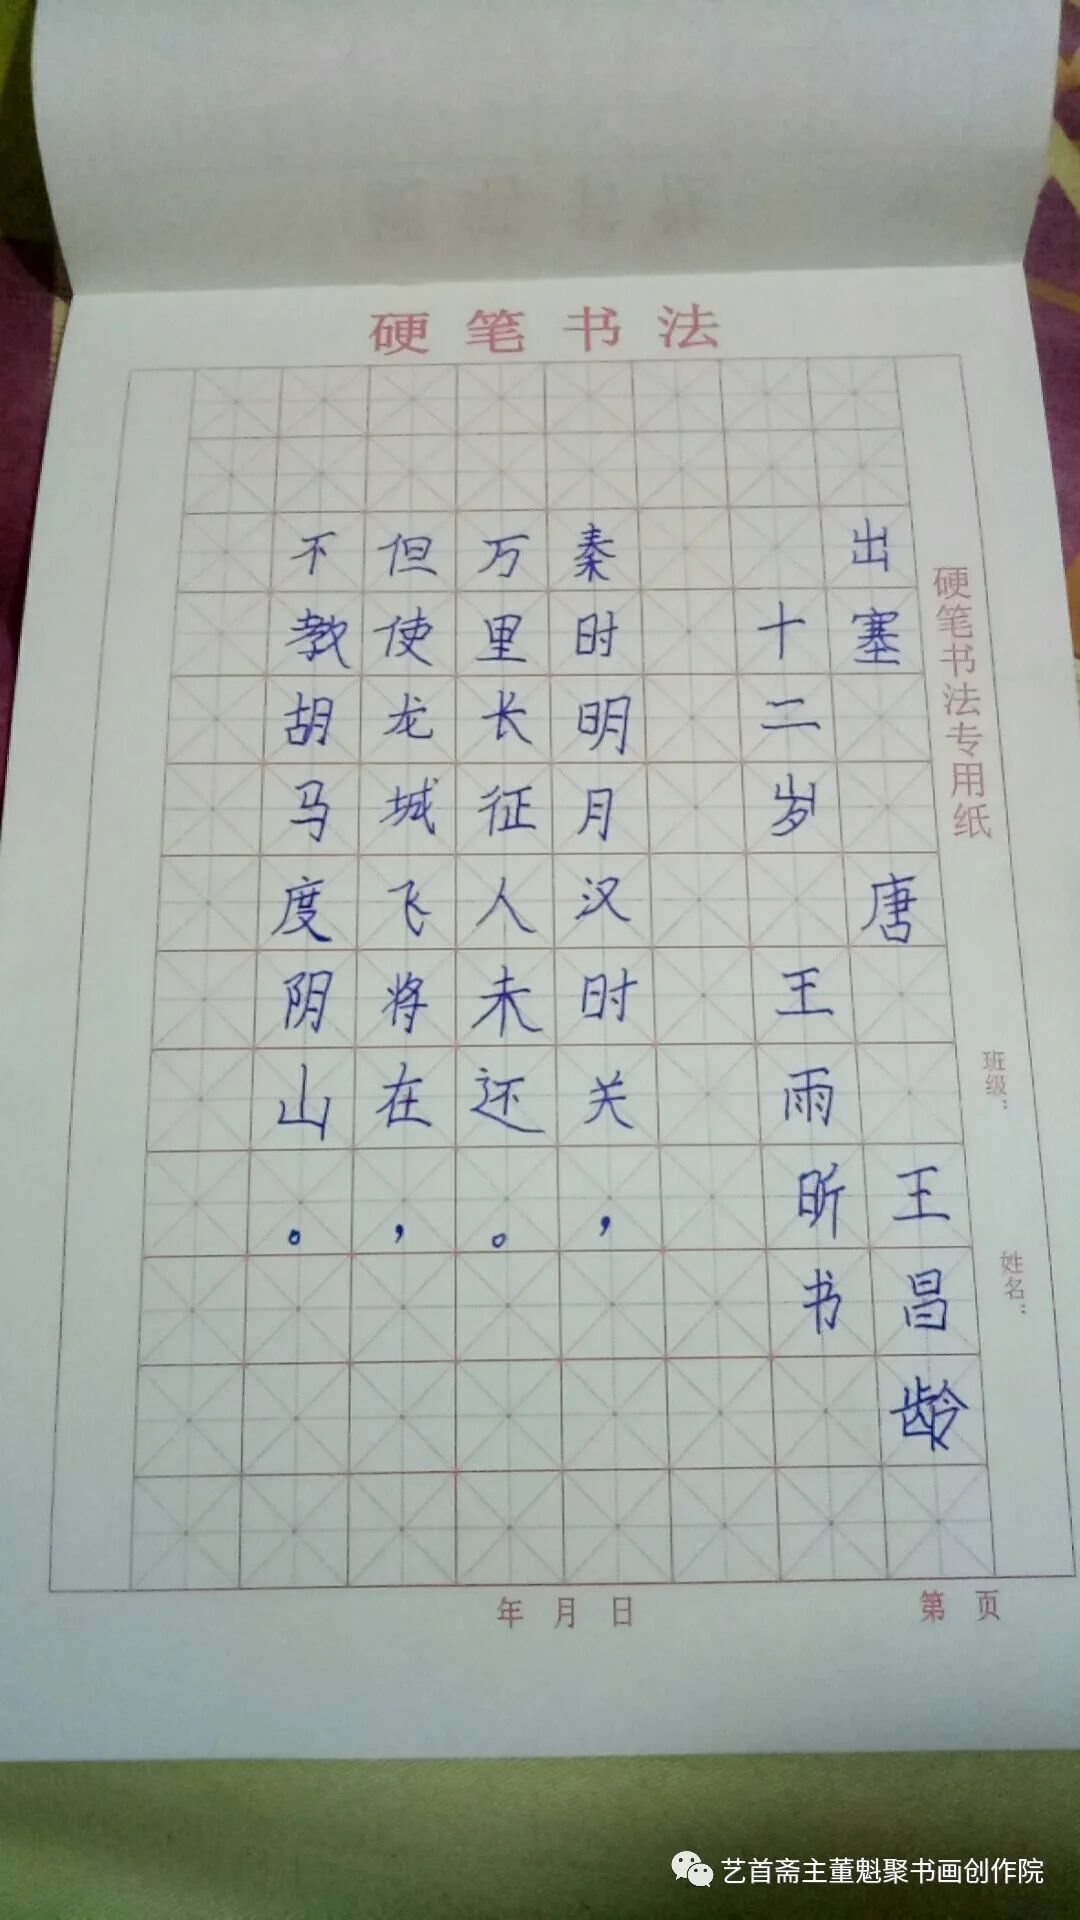 硬笔书法
出塞 唐 王昌龄
十二岁 王雨昕书
秦时明月汉时关，
万里长征人未还。
但使龙城飞将在，
不教胡马度阴山。
硬笔书法专用纸
班级：
姓名：
年 月 日
第 页
艺首斋主董魁聚书画创作院